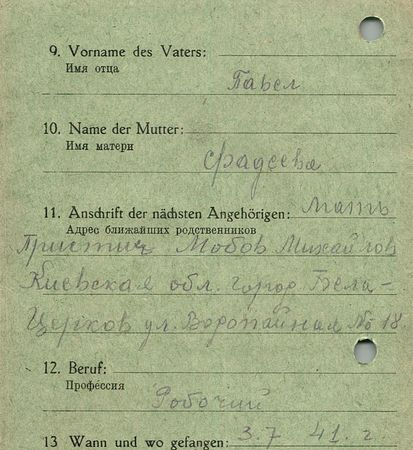 9. Vorname des Vaters:
Имя отца
Павел
10. Name der Mutter:
Имя матери
Фадеева
11. Anschrift der nächsten Angehörigen: Мать
Адрес ближайших родственников
Киевская обл. город Бела-
Церков ул. No 18.
12. Beruf:
Профессия
Робочий
13 Wann und wo gefangen: 3.7 41. г.